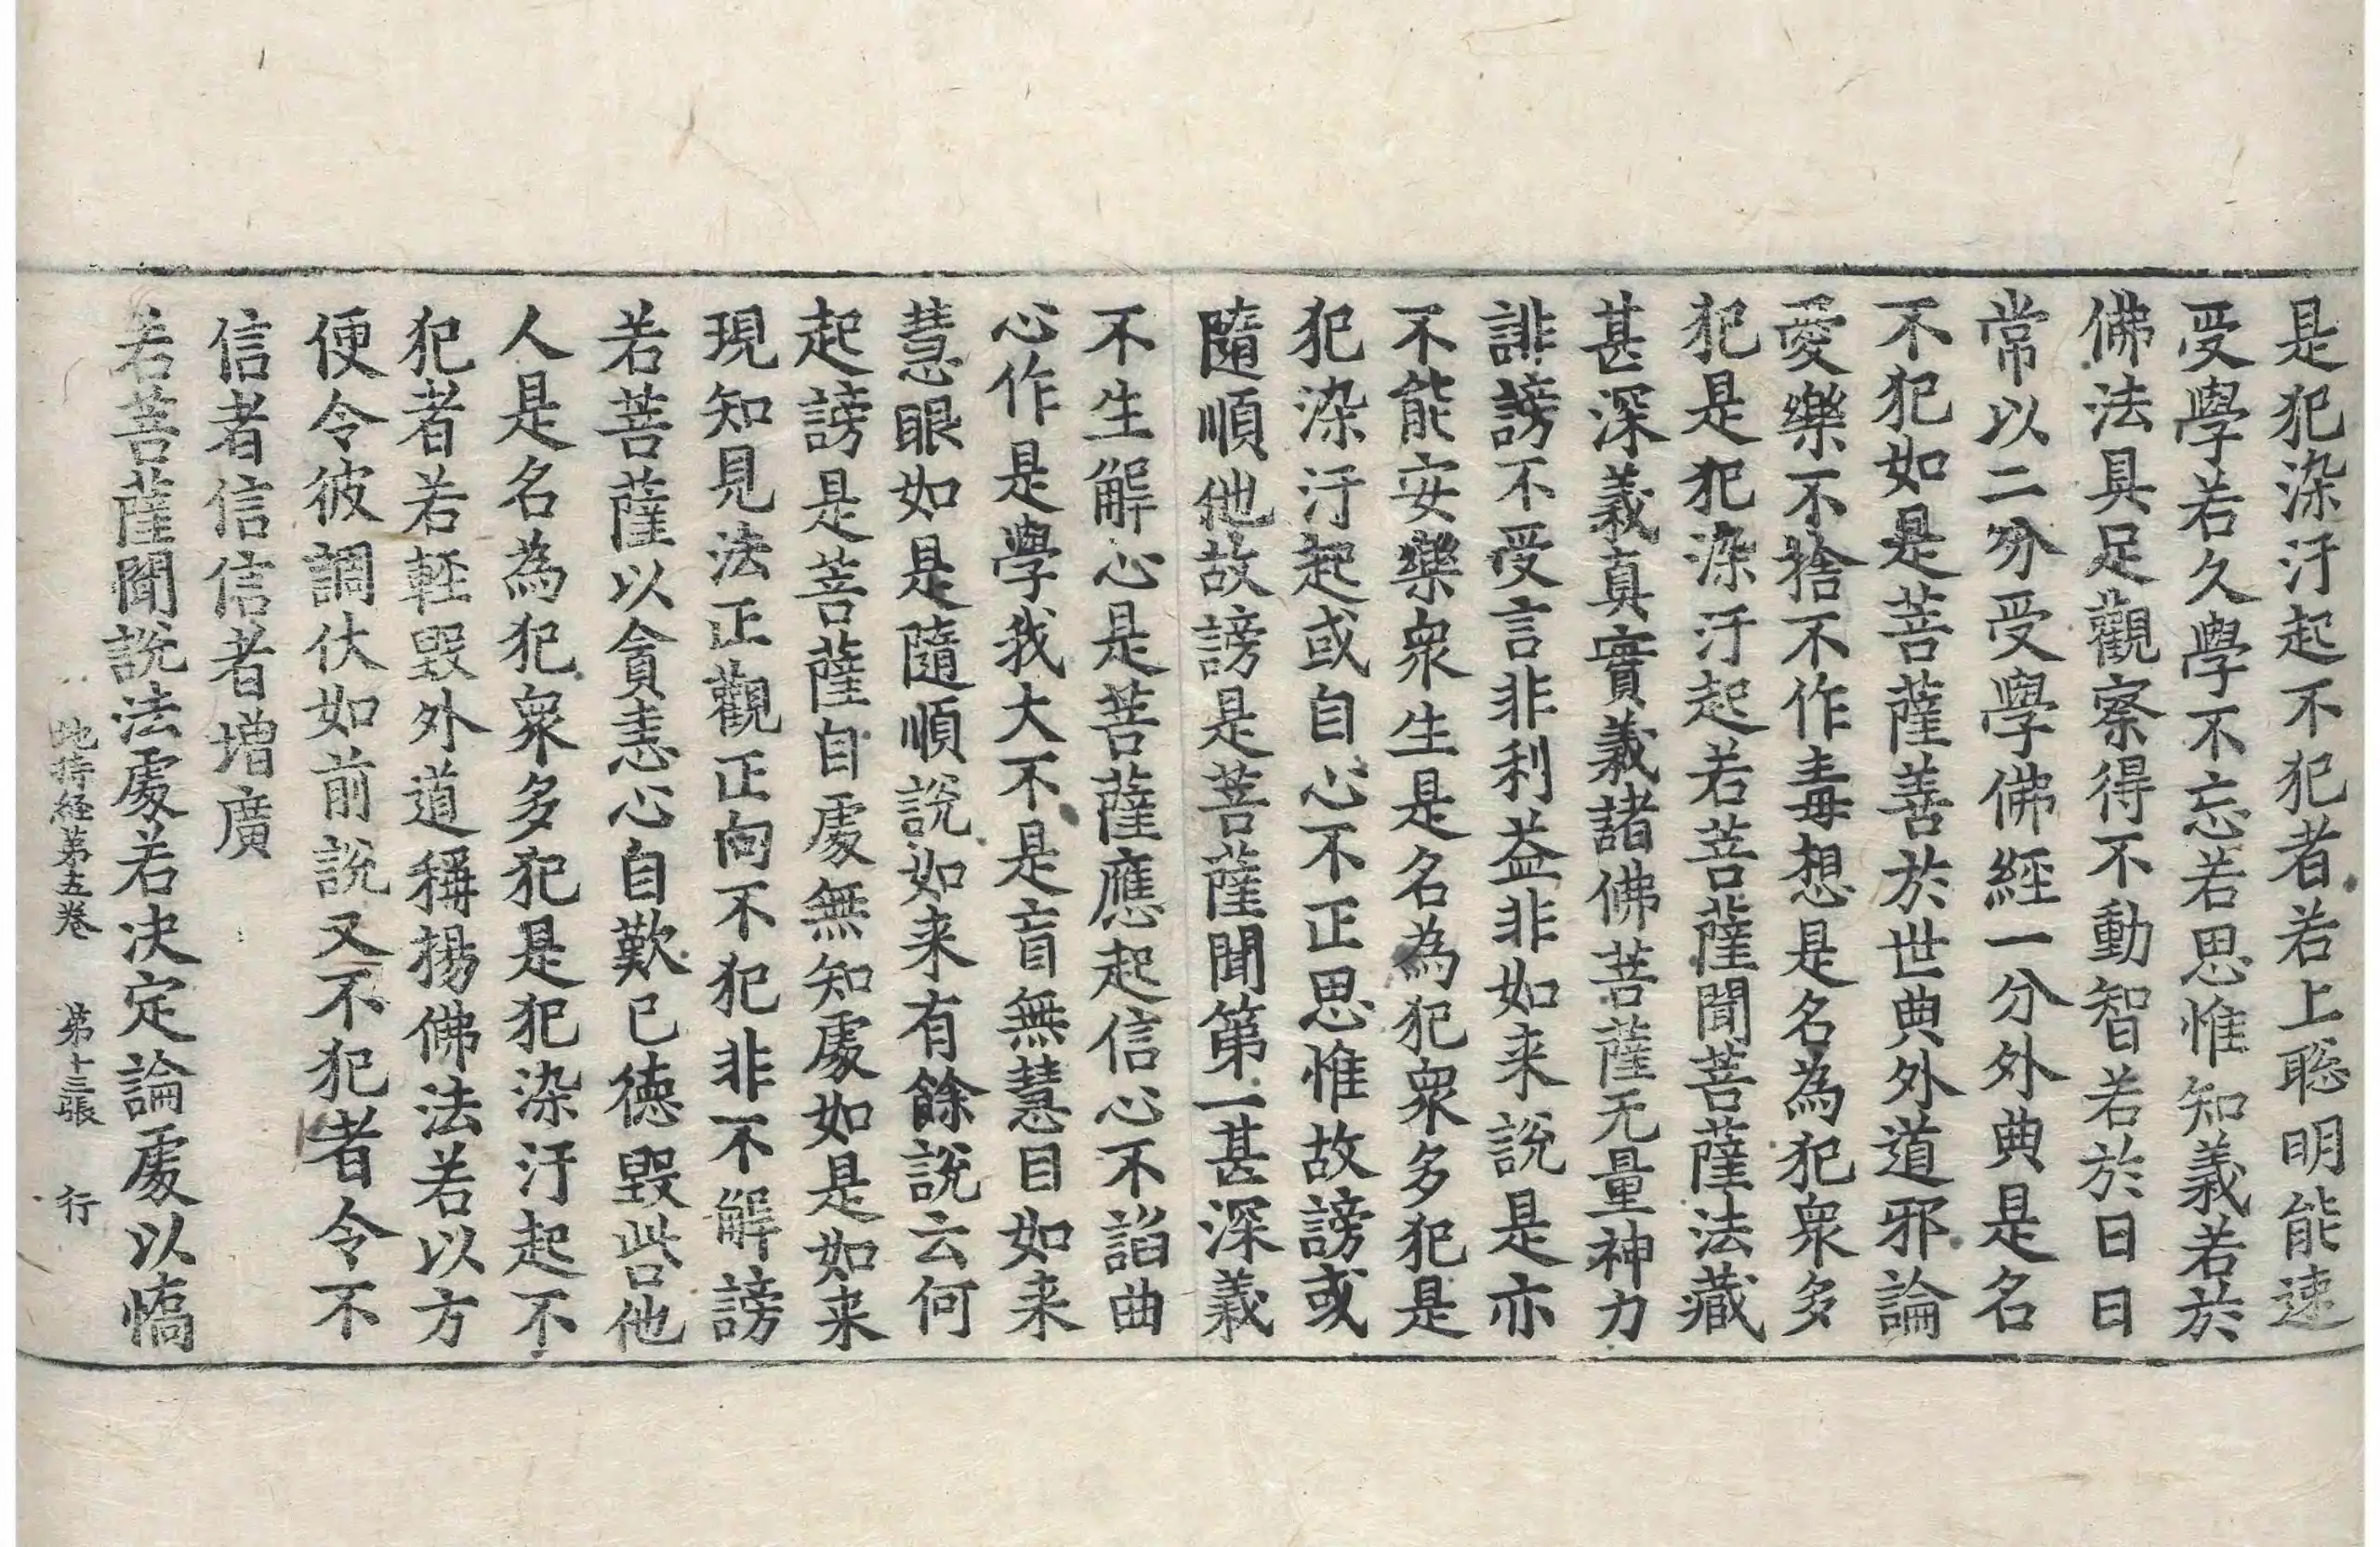 是犯染汙起不犯者若上聡明能速
受學若久學不忘若思惟知義若於
佛法具足觀察得不動智若於日日
常以二分受學佛經一分外典是名
不犯如是菩薩善於世典外道邪論
愛樂不捨不作毒想是名為犯衆多
犯是犯染汙起若菩薩聞菩薩法藏
甚深義真實義諸佛菩薩无量神力
誹謗不受言非利益非如来說是亦
不能安樂衆生是名為犯衆多犯是
犯染汙起或自心不正思惟故謗或
隨順他故謗是菩薩聞第一甚深義
不生解心是菩薩應起信心不諂曲
心作是學我大不是盲無慧目如来
慧眼如是隨順說如来有餘說云何
起謗是菩薩自處無知處如是如来
現知見法正觀正向不犯非不解謗
若菩薩以貪恚心自歎已德毀呰他
人是名為犯衆多犯是犯染汙起不
犯者若輕毀外道稱揚佛法若以方
便令彼調伏如前說又不犯者令不
信者信信者増廣
若菩薩聞說法處若决定論處以憍
地持経第五卷 第十三張 行